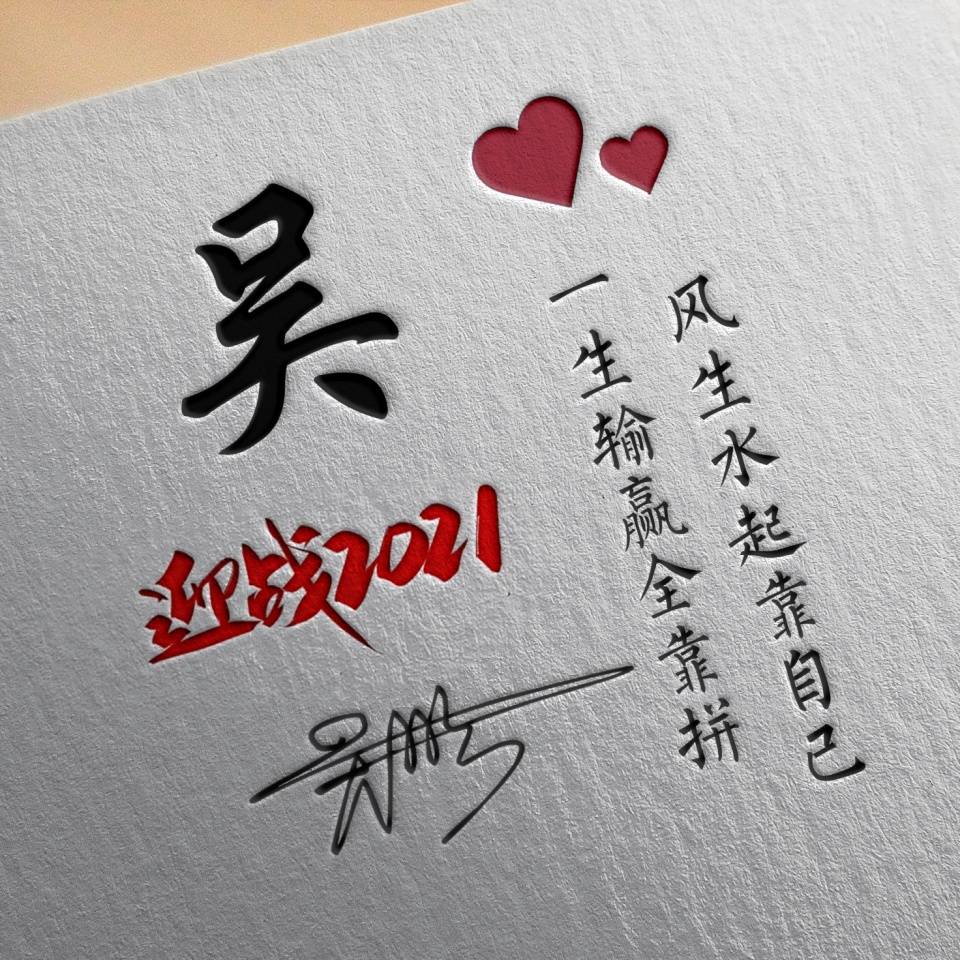 吴
迎战2021
吴鹏
风生水起靠自己
一生输赢全靠拼